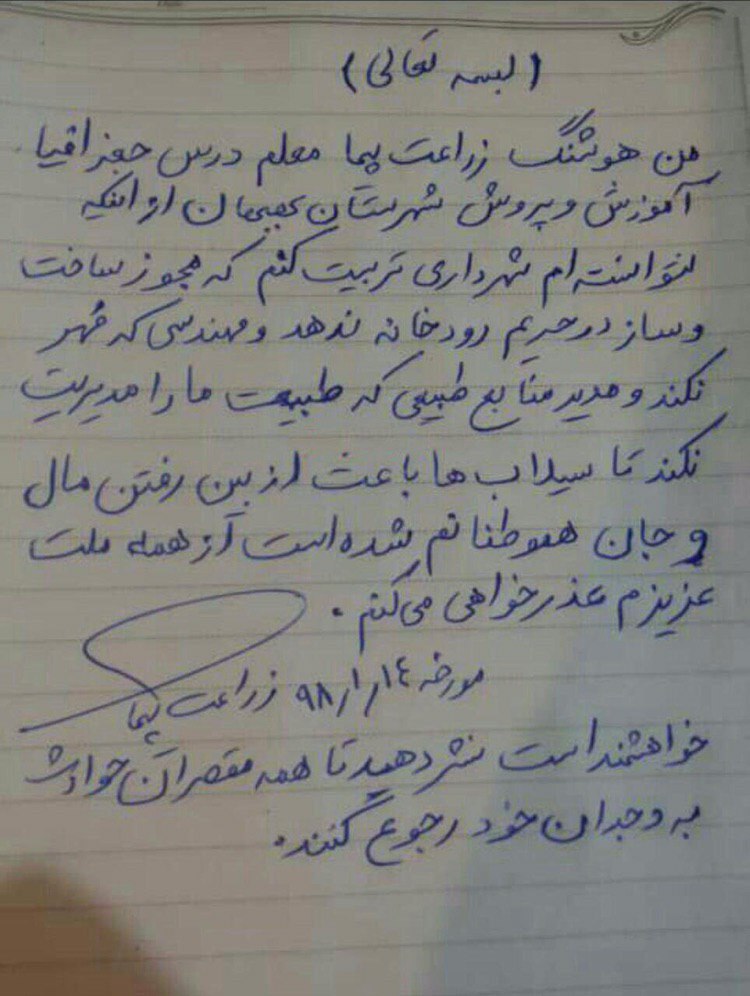 (بسمه تعالی)
من هوشنگ زراعت پیما معلم درس جغرافیا
آموزش و پروش شهرستان بهبهان از اینکه
نتوانسته ام شهرداری تربیت کنم که مجوز ساخت
وساز در حریم رودخانه ندهد و مهندسی که مُهر
نکند و مدیر منابع طبیعی که طبیعت ما را مدیریت
نکند تا سیلاب ها باعث از بین رفتن مال
و جان هموطنانم شده است از همه ملت
عزیزم عذرخواهی می کنم .
مورخه ۹۸/۱/۱۴ زراعت پیما
خواهشمند است نشر دهید تا همه مقصران حوادث
به وجدان خود رجوع کنند.